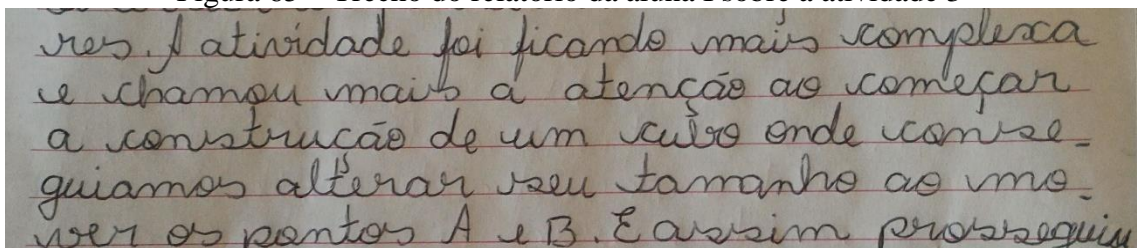 res. A atividade foi ficando mais complexa
e chamou mais a atenção ao começar
a construção de um cubo onde conse-
guiamos alterar seu tamanho ao mo-
ver os pontos A e B. E assim prosseguiu